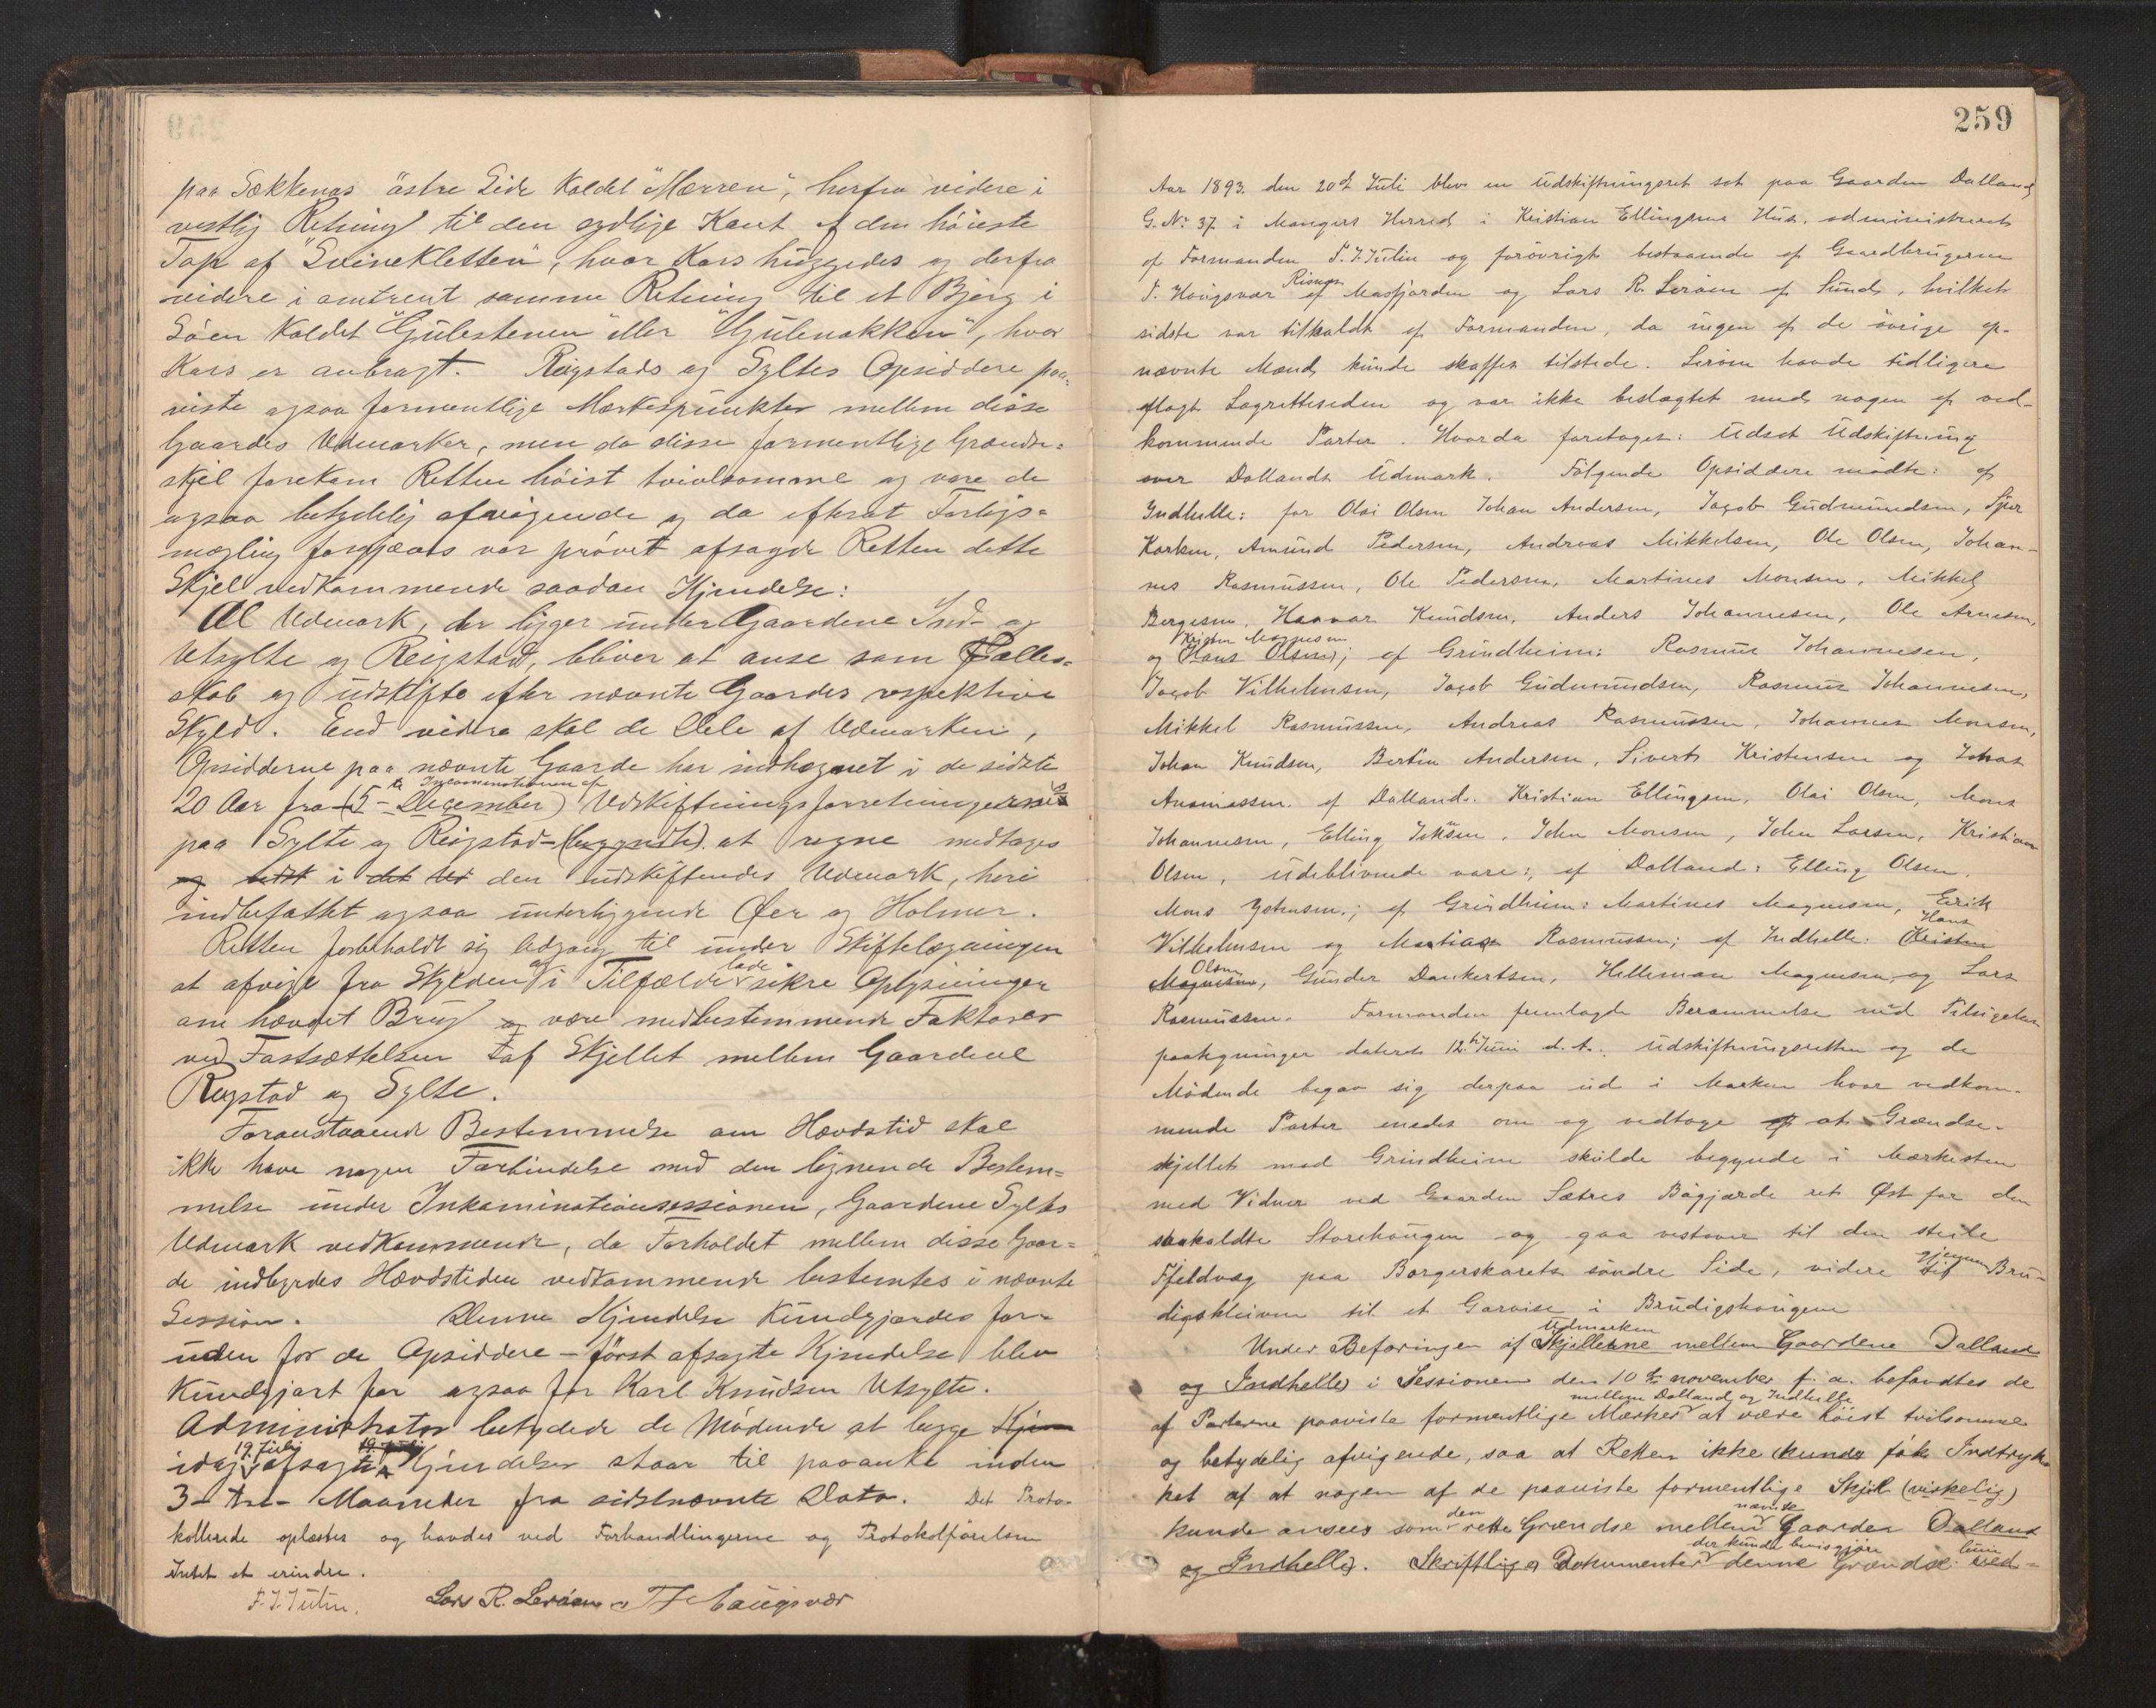 paa Sækkenas östre Side kaldet "Merren", herfra videre i
vestlig Retning til den sydlige Kant af den höieste
Top af "Svinekletten", hvor Kors huggedes og derfra
videre i omtrent samme Retning til et Bjerg i
Söen kaldet "Gulestenen" eller "Gulenakken", hvor
Kors er anbragt. Reigstads og Syltes Opsiddere paa-
viste ogsaa formentlige Merkespunkter mellem disse
Gaardes Udmarker, men da disse formentlige Grændse-
skjel forekom Retten höist tvivlsomme og vare de
ogsaa betydelig afvigende og da efterat Forligs-
mægling forgjæves var prövet afsagde Retten dette
Skjel vedkommende saadan Kjendelse:
Al Udmark, der ligger under Gaardene Ind- og
Utsylte og Reigstad, bliver at anse som Fælles-
skab og udskifte efter nævnte Gaardes respektive
Skyld. End videre skal de Dele af Udmarken,
Opsidderne paa nævnte Gaarde har indhegnet i de sidste
20 Aar fra (5te December) Inkaminationen af Udskiftningsforretningerne
paa Sylte og Reigstad (begyndte) at regne medtages
og udsk i det Ud den udskiftendes Udmark, heri
indbefattet ogsaa underliggende Öer og Holmer.
Retten forbeholdt sig Adgang til under Skiftelægningen
at afvige fra Skylden og i Tilfælde lade sikre Oplysninger
om hævdet Brug og være medbestemmende Faktorer
ved Fastsættelsen af Skjellet mellem Gaardene
Reigstad og Sylte.
Foranstaaende Bestemmelse om Hævdstid skal
ikke have nogen Forbindelse med den lignende Bestem-
melse under Inkaminationsessionen, Gaardene Syltes
Udmark vedkommende, da Forholdet mellem disse Gaar-
de indbyrdes Hævdstiden vedkommende bestemtes i nævnte
Session. Denne Kjendelse kundgjordes for-
uden for de Opsiddere - först afsagte Kjendelse blev
kundgjort for ogsaa for Karl Knudsen Utsylte.
Administrator betydede de Mödende at begge Kjen
idag 19 Juli afsagte Kjendelser staar til paaanke inden
3 - tre - Maaneder fra sidstnævnte Dato. Det Proto-
kollerede oplæstes og havdes ved Forhandlingerne og Protokolförelsen
Intet at erindre.
P. J. Jutin. Lars R. Leröen T. Hougsvær
259
Aar 1893. den 20de Juli blev en Udskiftningsret sat paa Gaarden Dalland
G.No 37 i Mangers Herred i Kristian Ellingsens Hus. administreret
af Formanden P. J. Jutin og forövrigt bestaaende af Gaardbrugerne
T. Hougsvær af Masfjorden og Lars R. Leröen af Sund, hvilket
sidste var tilkaldt af Formanden, da ingen af de övrige op-
nævnte Mænd kunde skaffes tilstede. Leröen havde tidligere
aflagt Lagretteseden og var ikke beslægtet med nogen af ved-
kommende Parter. Hvorda foretoges: Udsat Udskiftning
over Dallands Udmark. Fölgende Opsiddere mödte: af
Indhelle: for Olai Olsen Johan Andersen, Jacob Gudmundsen, Sjur
Korsen, Amund Pedersen, Andreas Mikkelsen, Ole Olsen, Johan-
nes Rasmussen, Ole Pedersen, Martines Monsen, Mikkel
Bergesen, Haavar Knudsen, Anders Johannesen, Ole Arnesen,
Kristen Magnesen
og Hans Olsen; af Grindheim: Rasmus Johannesen,
Jacob Vilhelmsen, Jacob Gudmundsen, Rasmus Johannesen,
Mikkel Rasmussen, Andreas Rasmussen, Johannes Monsen,
Johan Knudsen, Bertin Andersen, Sivert Kristensen og Johan
Ananiassen. af Dalland. Kristian Ellingsen, Olai Olsen, Mons
Johannesen, Elling Johsen, John Monsen, John Larsen, Kristian
Olsen, Udeblivende vare: af Dalland: Elling Olsen,
Mons Johnsen; af Grindheim: Martines Magnesen, Erik
Vilhelmsen og Mathias Rasmussen; af Indhelle: Kristen Hans
Magnesen Olsen, Gunder Dankertsen, Helleman Magnesen og Lars
Rasmussen. Formanden fremlagde Berammelse med Tilsigelses
paategninger dateret 12te Juni d. A. Udskiftningsretten og de
Mödende begav sig derpaa ud i Marken hvor vedkom-
mende Parter enedes om og vedtoge at Grændse-
skjellet mod Grindheim skulde begynde i Merkesten
med Vidner ved Gaarden Sætres Bögjærde ret Öst for den
saakaldte Storehougen og gaa vestover til den steile
Fjeldvæg paa Borgerskarets söndre Side, videre til gjennem Bru-
digskleiven til et Garvise i Brudigshougene
Udmarken
Under Befaringen af Skjellene mellem Gaardene Dalland
og Indhelle i Sessionen den 10de november f. a. befandtes de
mellem Dalland og Indhelle
af Parterne paaviste formentlige Mærker at være höist tvilsomme
og betydelig afvigende, saa at Retten ikke kunde fik Indtryk-
ket af at nogen af de paaviste formentlige Skjel (virkelig)
kunde ansees som den rette Grændse mellem nævnte Gaarder Dalland
der kunde bevisgjöre
og Indhelle. Skriftlige Dokumenter denne Grændse ved-